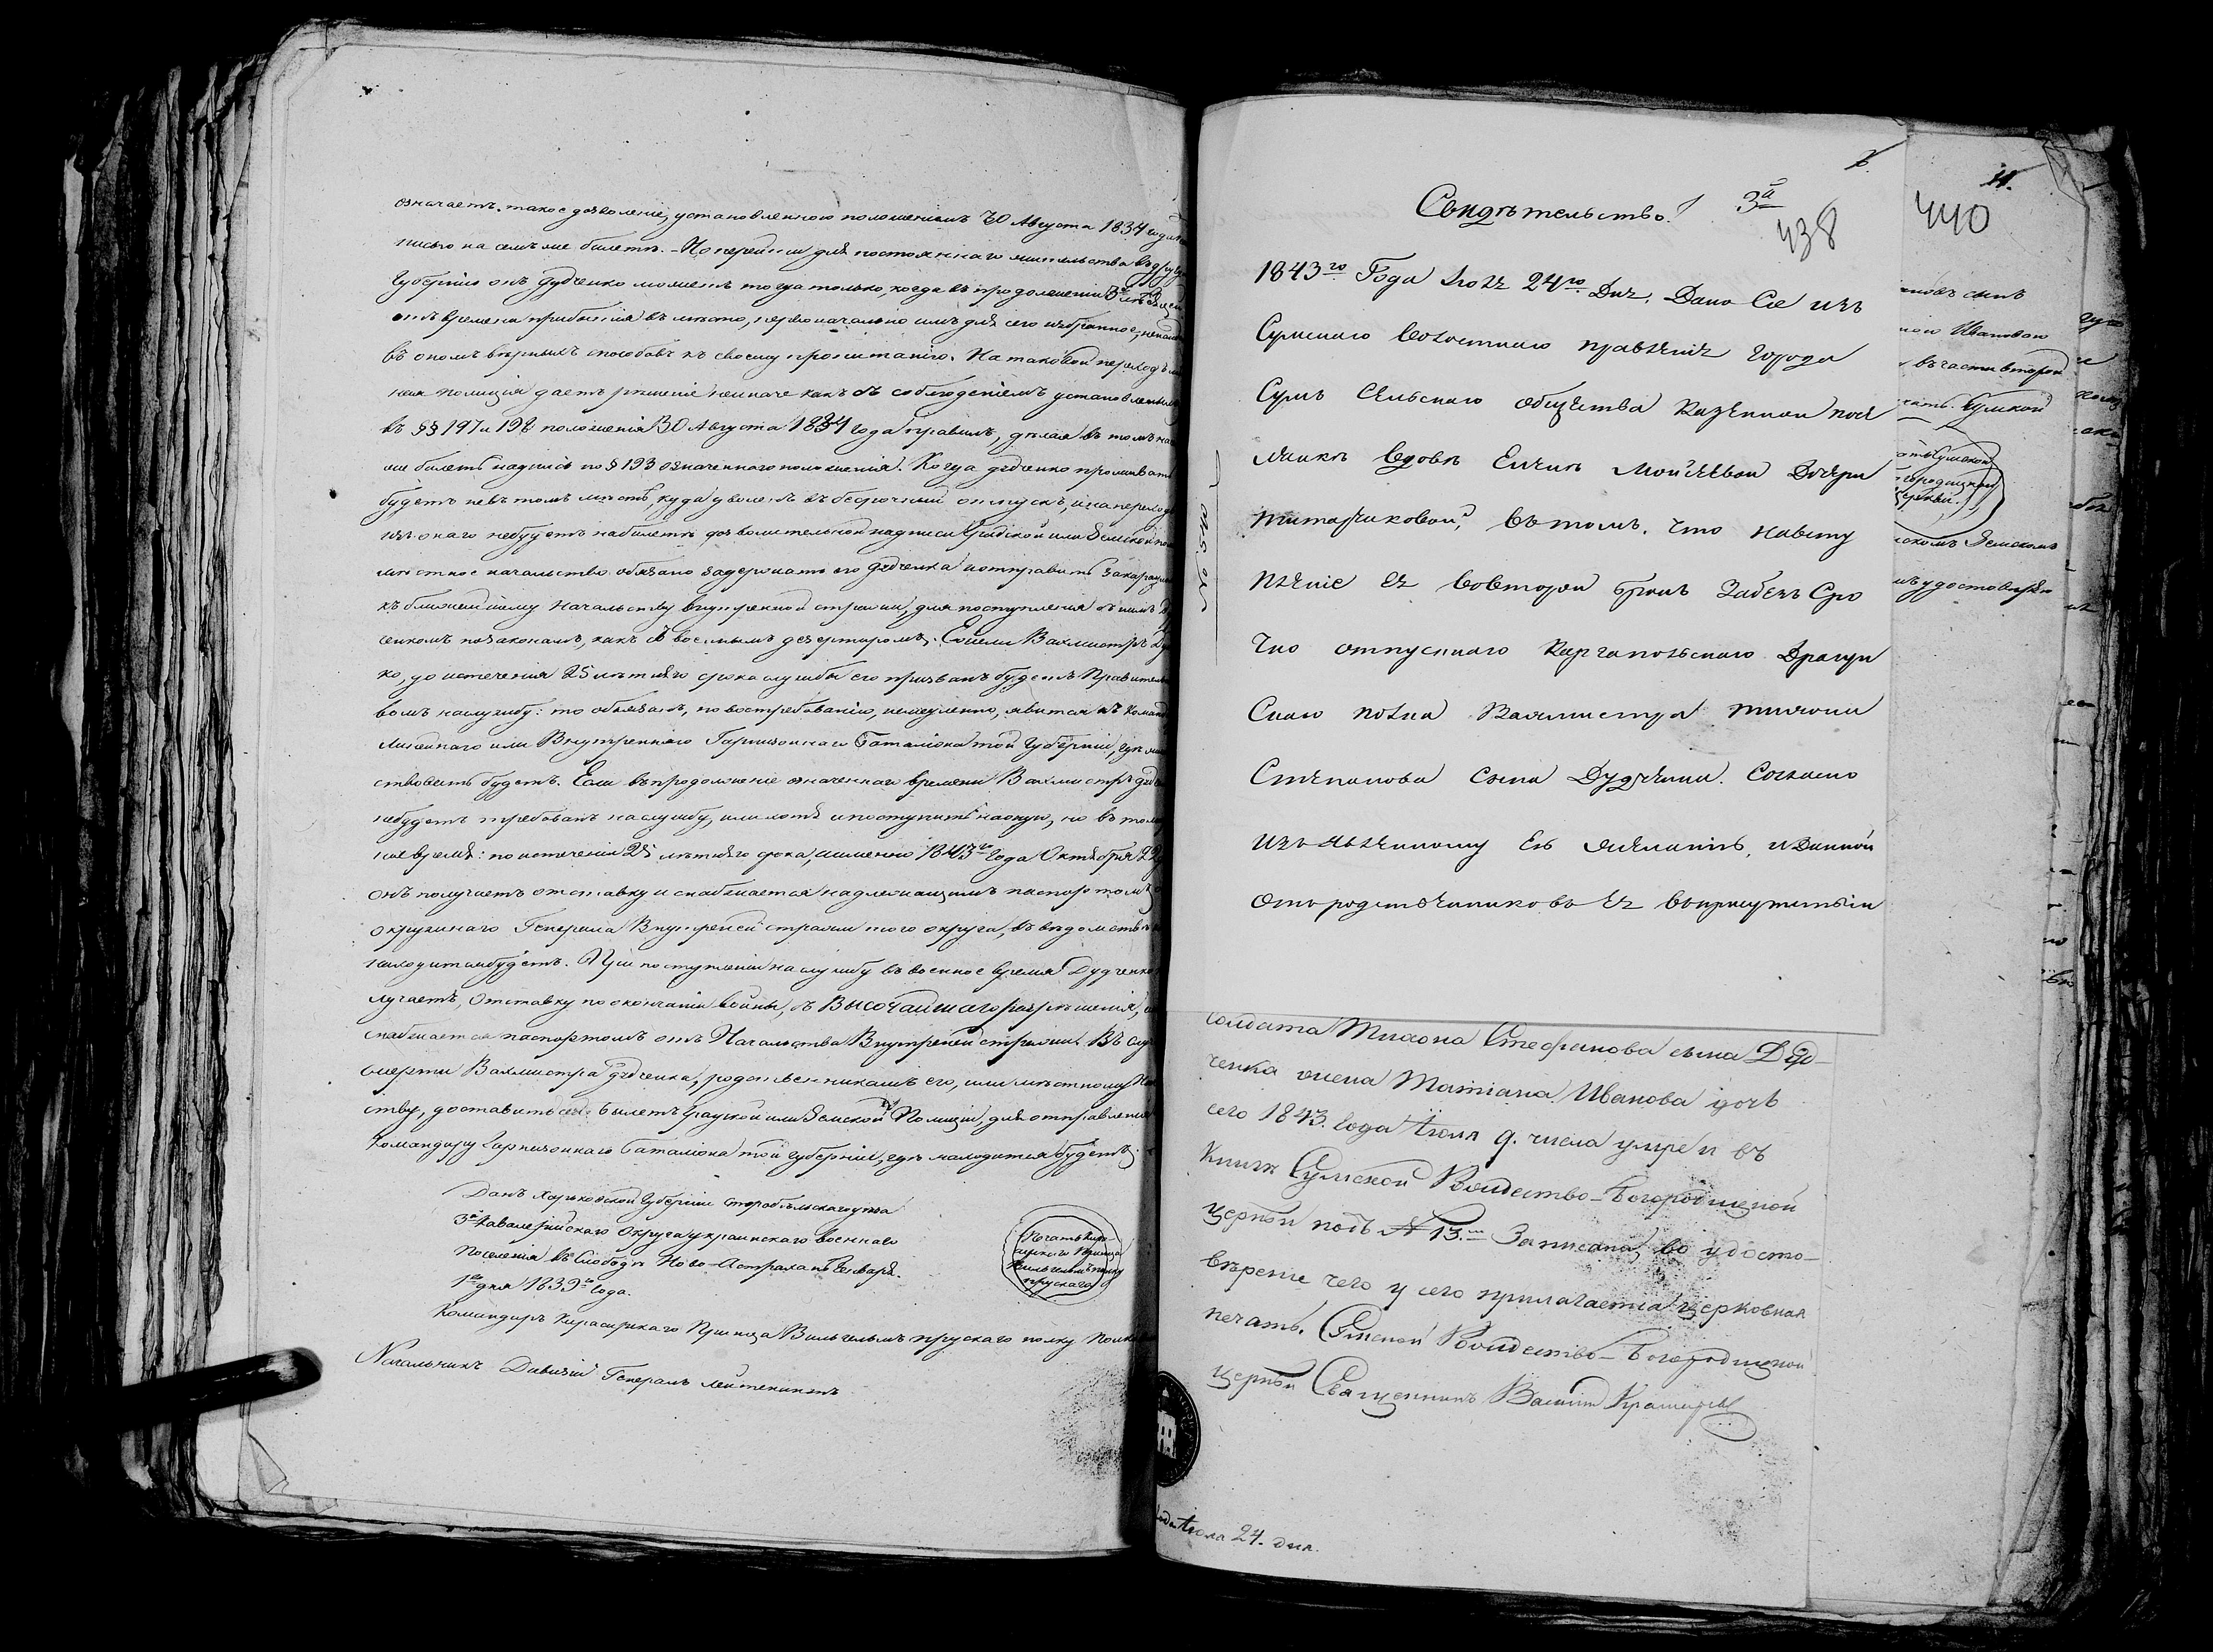 означаетъ такое дозволеніе, установленною положеніемъ 30 Августа 1834 года
писью на семъ же билетѣ. – Но перейти для постояннаго жительства въ другую
Губернію онъ Дудченко можетъ тогда только, когда въ продолженіи
отъ времени прибытія въ мѣсто, первоначально имъ для сего избранное,
въ ономъ вѣрныхъ способовъ къ своему пропитанію. На таковой переходъ
ская полиція даетъ рѣшеніе неиначе какъ съ соблюденіемъ установленныхъ
въ §§ 197 и 198 положенія 30 Августа 1834 года правилъ, дѣлая въ томъ на
же билетѣ надпись по § 193 означеннаго положенія. Когда Дудченко проживать
будетъ не въ томъ мѣстѣ, куда уволенъ въ безсрочный отпускъ, и на переходъ
изъ онаго небудетъ на билетѣ дозволительной надписи Градской или Земской
мѣстное начальство обязано задержать его Дудченка и отправить за карауломъ
къ ближайшему Начальству внутренной стражи, для поступленія съ нимъ
ченкомъ по законамъ, какъ съ военнымъ дезертиромъ. Ежели Вахмистръ Дуд
ко, до истеченія 25 лѣтняго срока службы его призванъ будетъ Правитель
вомъ на службу: то обязанъ, по востребованію, немедленно, явится къ Команд
Линейнаго или Внутренняго Гарнизоннаго Баталіона той Губерніи, гдѣ
ствовать будетъ. Если въ продолженіе означеннаго времени Вахмистръ Дудче
небудетъ требованъ на службу, или хотя и поступитъ на оную, но въ
ное время: по истеченіи 25 лѣтняго срока, именно 1843го Года Октября 22
онъ получаетъ отставку и снабжается надлежащимъ паспортомъ
окружнаго Генерала Внутреней стражи того округа, въ вѣдомствѣ
находится будетъ. При поступленіи на службу въ военное время Дудченко
лучаетъ, отставку по окончаніи войны, съ Высочайшаго разрѣшенія,
снабжается паспортомъ отъ Начальства Внутреней стражи. Въ слу
смерти Вахмистра Дудченка, родственникамъ его, или мѣстному На
ству, доставить сей билетъ Градской или Земской Полиціи, для отправленія
Командиру Гарнизоннаго Баталіона той губерніи, гдѣ находится будетъ.
Данъ Харьковской Губерніи Старобѣльскаго уѣзда
3го Кавалерійскаго Округа Украинскаго военнаго
поселенія въ Слободѣ Ново-Астрахани Генваря
1го дня 1839го Года.
Командиръ Кирасирскаго Принца Вильгельма прускаго полку
Начальникъ Дивизіи Генералъ Лейтенантъ
Печать Кира
сирскаго Принца
Вильгельма полку
прускаго
Свидѣтельство.
3й
438
1843го Года Іюля 24го Дня. Дано Сіе изъ
Сумскаго Волостнаго правленія города
Сумъ Сельскаго общества Казенной посе
лянкѣ Вдовѣ Еленѣ Мойсеевой Дочери
Титарчиковой, въ томъ. что навсту
пленіе ея вовторой бракъ Забезъ Сро
чно отпускнаго Каргапольскаго Драгун
Скаго полка Вахмистра Тихона
Степанова сына Дудченка. Согласно
изъявленному Ею желанію, и данной
отъ родственниковъ ея въприсутствіи
№ 950
солдата Тихона Стефанова сына Дуд–
ченка жена Татіана Иванова дочь
сего 1843. года Іюля 9. числа умре и въ
книгѣ Сумской Рождество–Богородичной
церкви подъ № 13.м Записана, во удосто–
вѣреніе чего у сего прилагается церковная
печать. Сумской Рождество–Богородичной
церкви Священникъ Василій
года Іюля 24. дня.
440
сынъ
Ивановою
въ части второй
Сумской
Сумской
городицкой
церкви.
Земскомъ
удостовѣряю